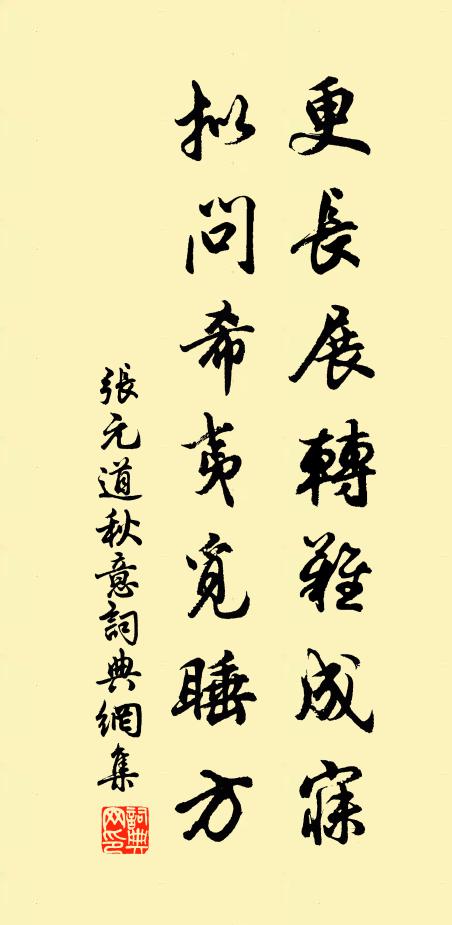 更長展轉難成寐
擬問希夷覓睡方
張元道秋意詞典網集
詞典网印